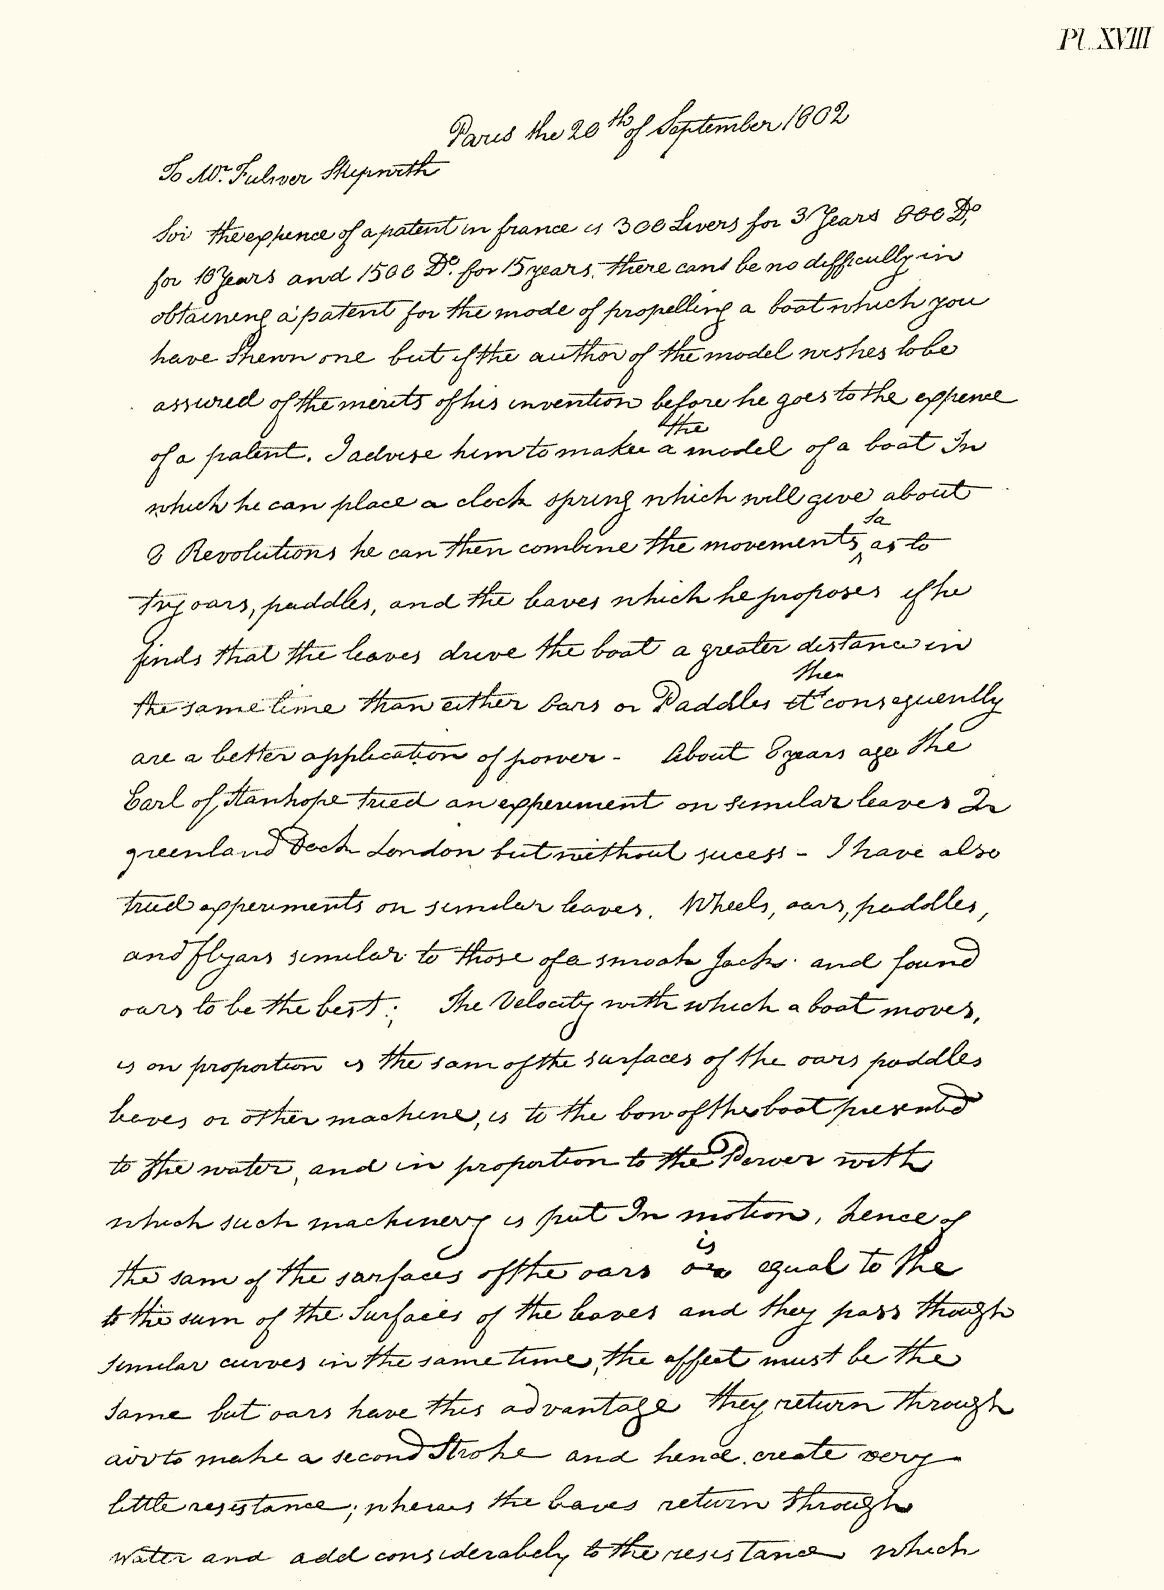 Pl. XVIII
Paris the 20th of September 1802
To Mr. Fulwer Skipwith
Sir the expence of a patent in france is 300 Livers for 3 Years 800 Do,
for 10 Years and 1500 Do. for 15 years, there cant be no difficully in
obtaineng a patent for the mode of propelling a boat which you
have Shewn one but if the author of the model wishes to be
assured of the merits of his invention before he goes to the expence
the
of a patent. I advise him to make a model of a boat In
which he can place a clock spring which will give about
so
8 Revolutions he can then combine the movements as to
try oars, paddles, and the leaves which he proposes if he
finds that the leaves drive the boat a greater distance in
then
the same time than either Oars or Paddles it consequently
are a better application of power - About 8 years ago the
Earl of Stanhope tried an experiment on similar leaves In
greenland Dock London but without sucess - I have also
tried experiments on similar leaves. Wheels, oars, paddles,
and flyars similar to those of a smoak Jack. and found
oars to be the best; The Velocity with which a boat moves,
is on proportion is the sam of the surfaces of the oars paddles
leaves or other machine, is to the bow of the boat presented
to the water, and in proportion to the Power with
which such machinery is put In motion, hence if
is
the sam of the sarfaces of the oars equal to the
to the sum of the Surfaces of the leaves and they pass though
similar curves in the same time, the affect must be the
same but oars have this advantage they return through
air to make a second Stroke and hence create very
little resistance; wheras the leaves return through
water and add considerabely to the resistance which